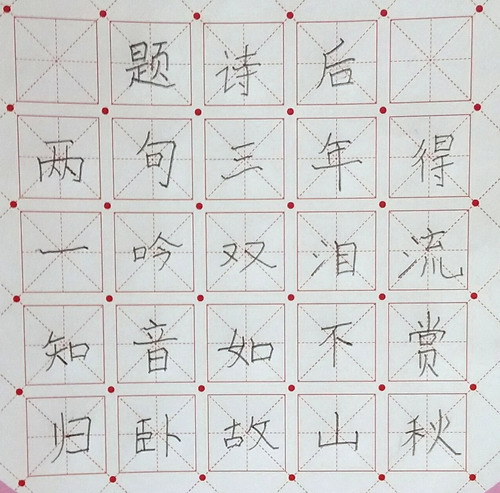 题诗后
两句三年得
一吟双泪流
知音如不赏
归卧故山秋